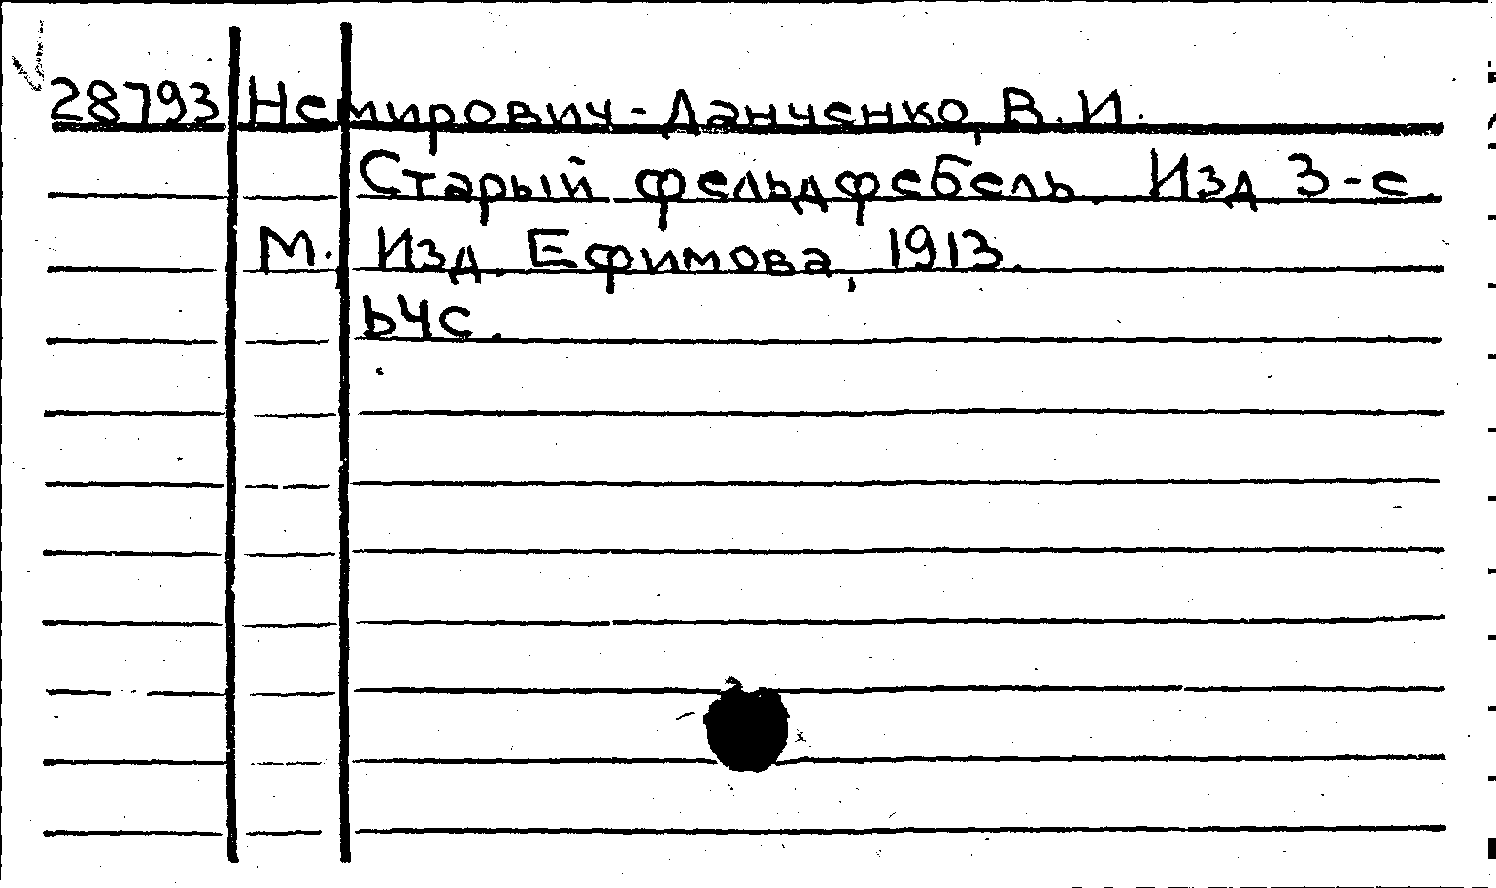 28793 Немирович-Данченко, В.И.
Старый фельдфебель. Изд 3-е.
М. Изд. Ефимова, 1913.
ь4с.